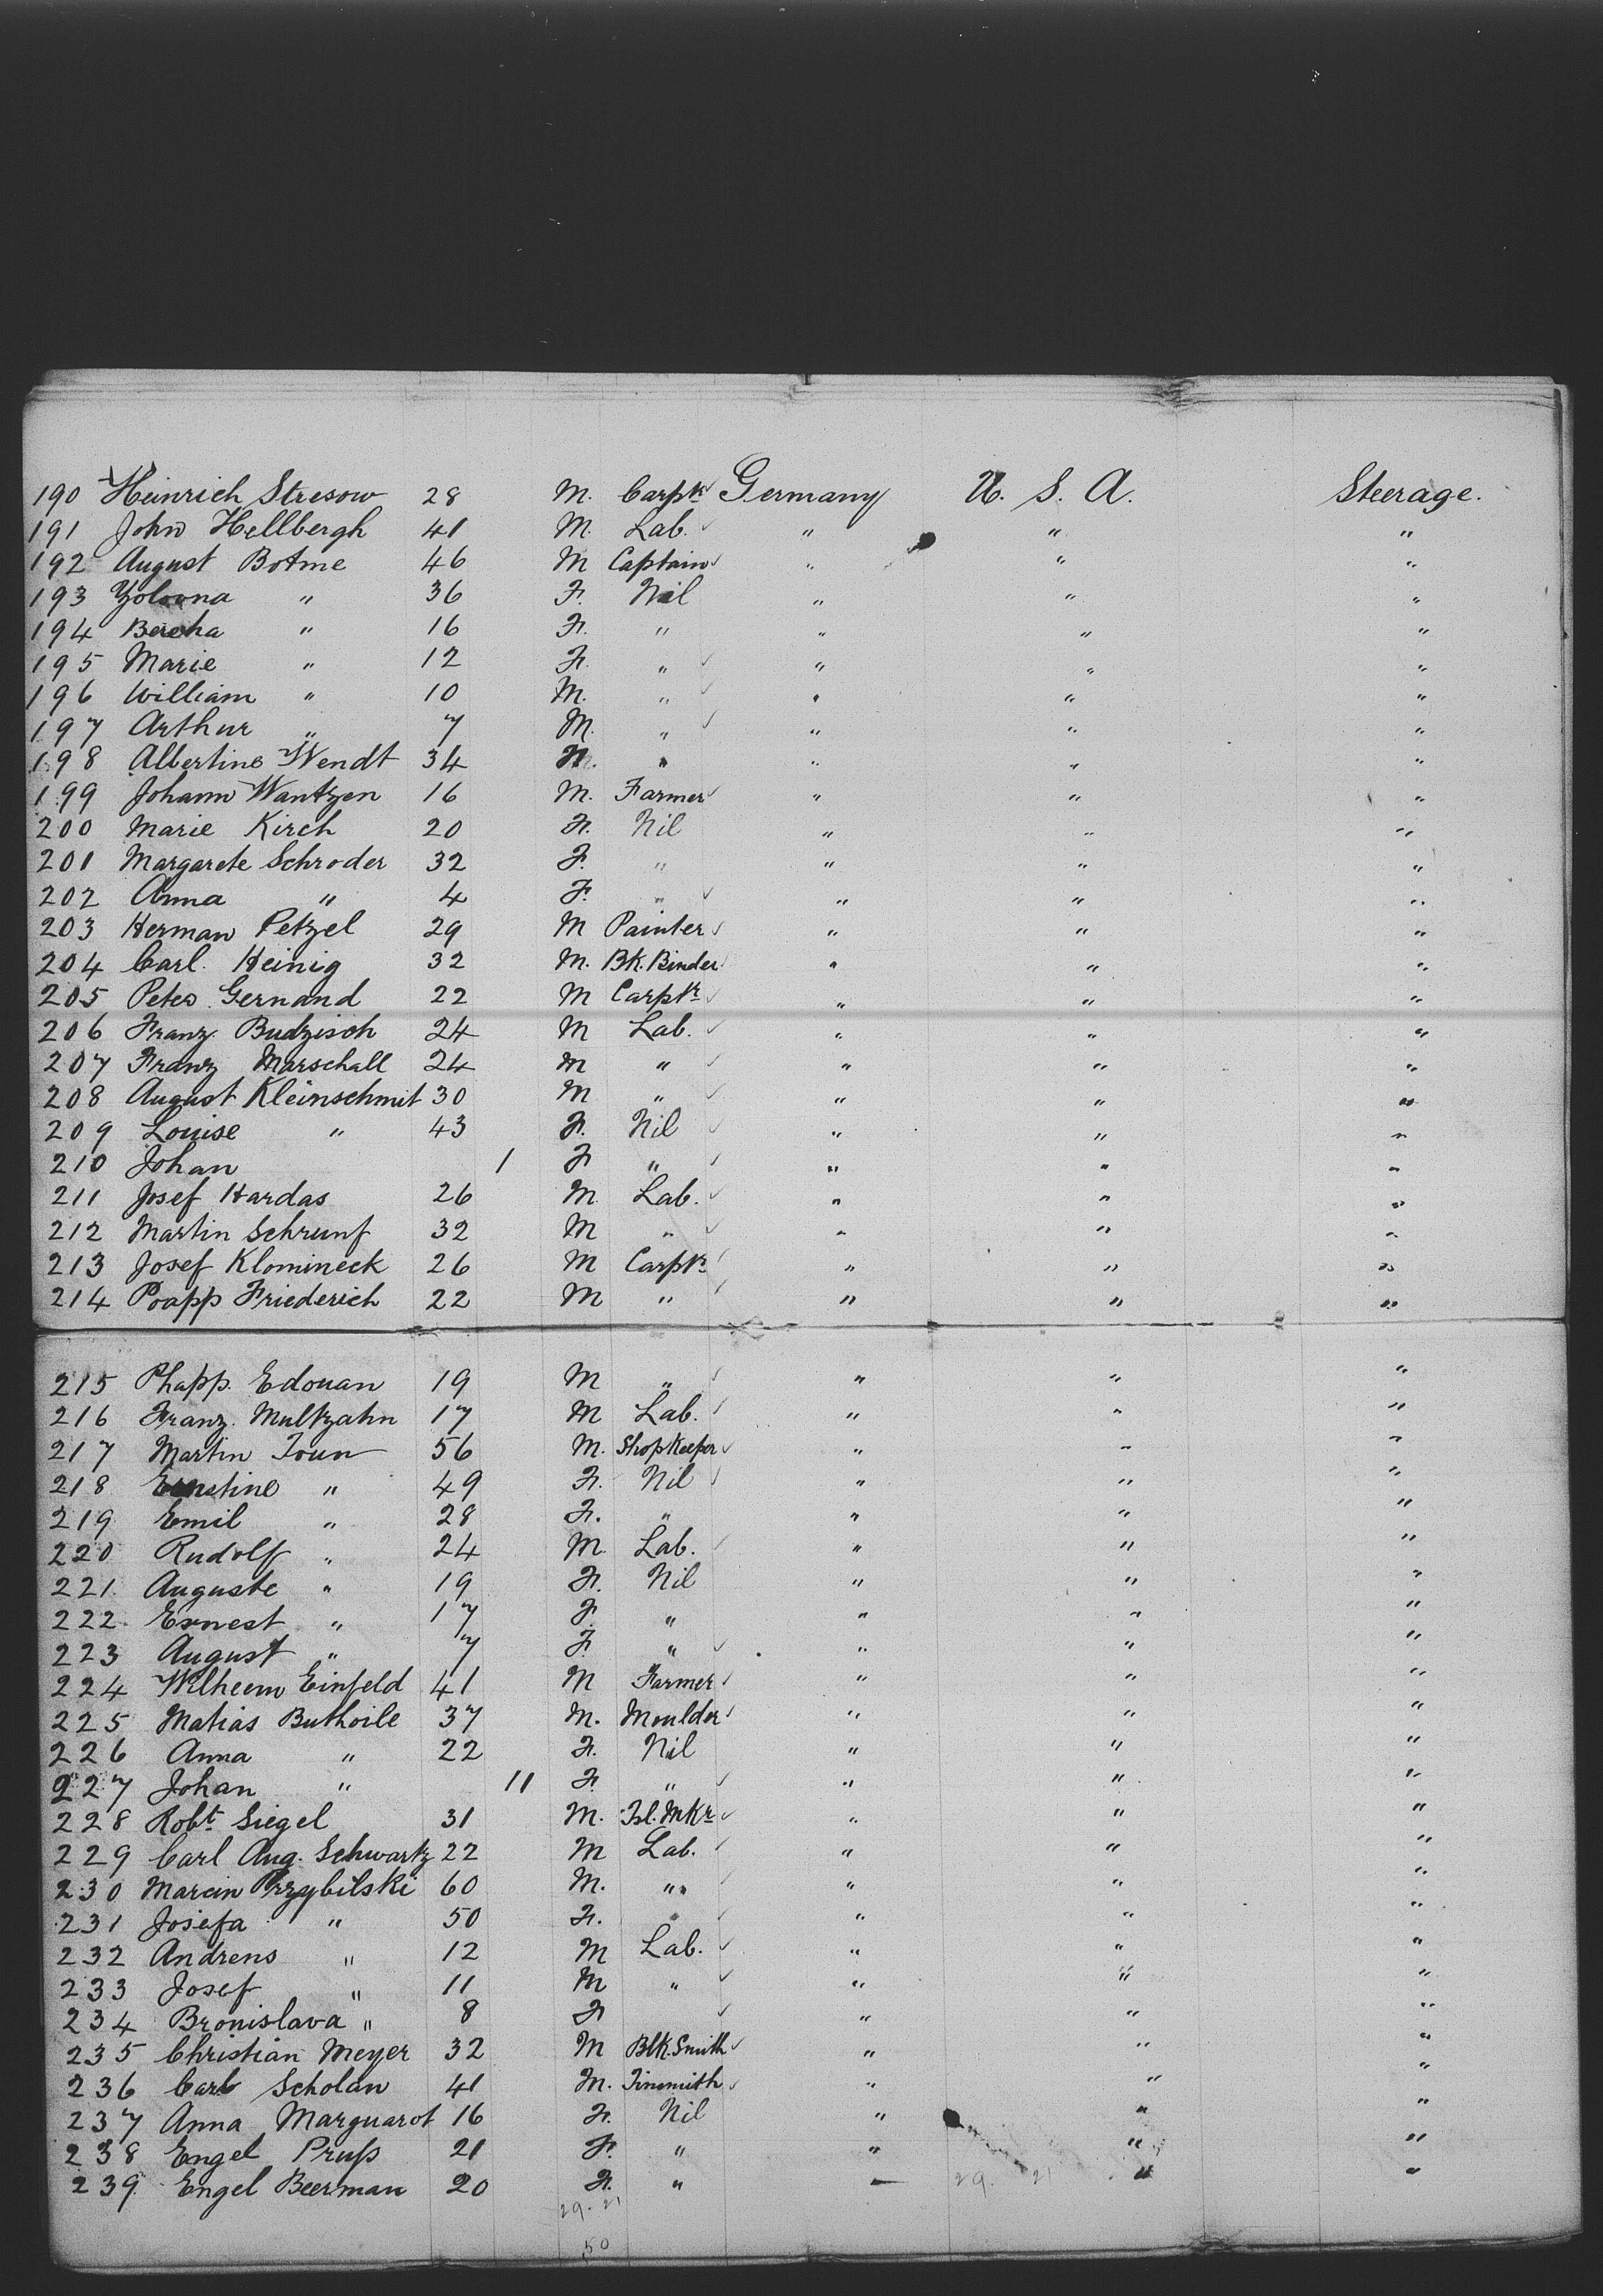 190 Heinrich Stresow 28 M. Carptr Germany U. S. A. Steerage.
191 John Hellbergh 41 M. Lab. " " "
192 August Botme 46 M Captain " " "
193 36 F. Nil " " "
194 " 16 F. " " " "
195 Marie " 12 F. " " " "
196 William " 10 M. " " " "
197 Arthur " 7 M. " " " "
198 Albertine Wendt 34 F. " " " "
199 Johann Wantzen 16 M. Farmer " " "
200 Marie Kirch 20 F. Nil " " "
201 Margarete Schroder 32 F. " " " "
202 Anna " 4 F. " " " "
203 Herman Petzel 29 M Painter " " "
204 Carl Heinig 32 M. Bk. Binder " " "
205 Peter Gernand 22 M Carptr " " "
206 Franz Budzisch 24 M Lab. " " "
207 Franz Marschall 24 M " " " "
208 August Kleinschmit 30 M " " " "
209 Louise " 43 F. Nil " " "
210 Johan 1 F " " " "
211 Josef Hardas 26 M Lab. " " "
212 Martin Schrunf 32 M " " " "
213 Josef Klomineck 26 M Carptr " " "
214 Poapp Friederich 22 M " " " "
215 Phapp. Edouan 19 M " " " "
216 Franz. Multzahn 17 M Lab. " " "
217 Martin Toun 56 M. Shopkeeper " " "
218 Ernstine " 49 F. Nil " " "
219 Emil " 28 F. " " " "
220 Rudolf " 24 M Lab. " " "
221 Auguste " 19 F. Nil " " "
222 Ernest " 17 F. " " " "
223 August " 7 F. " " " "
224 Wilheem Einfeld 41 M Farmer " " "
225 Matias Buthoile 37 M. Moulder " " "
226 Anna " 22 F. Nil " " "
227 Johan " 11 F. " " " "
228 Robt. Siegel 31 M. Tl. Mkr " " "
229 Carl Aug. Schwartz 22 M Lab. " " "
230 Marcin Przybilski 60 M. " " " "
231 Josefa " 50 F. " " " "
232 Andrens " 12 M Lab. " " "
233 Josef " 11 M " " " "
234 Bronislava " 8 F " " "
235 Christian Meyer 32 M Blk. Smith " " "
236 Carl Scholan 41 M. Tinsmith " " "
237 Anna Marguarot 16 F. Nil " " "
238 Engel Pruß 21 F. " " " "
239 Engel Beerman 20 F. " — " "
29. 21 29. 21
50